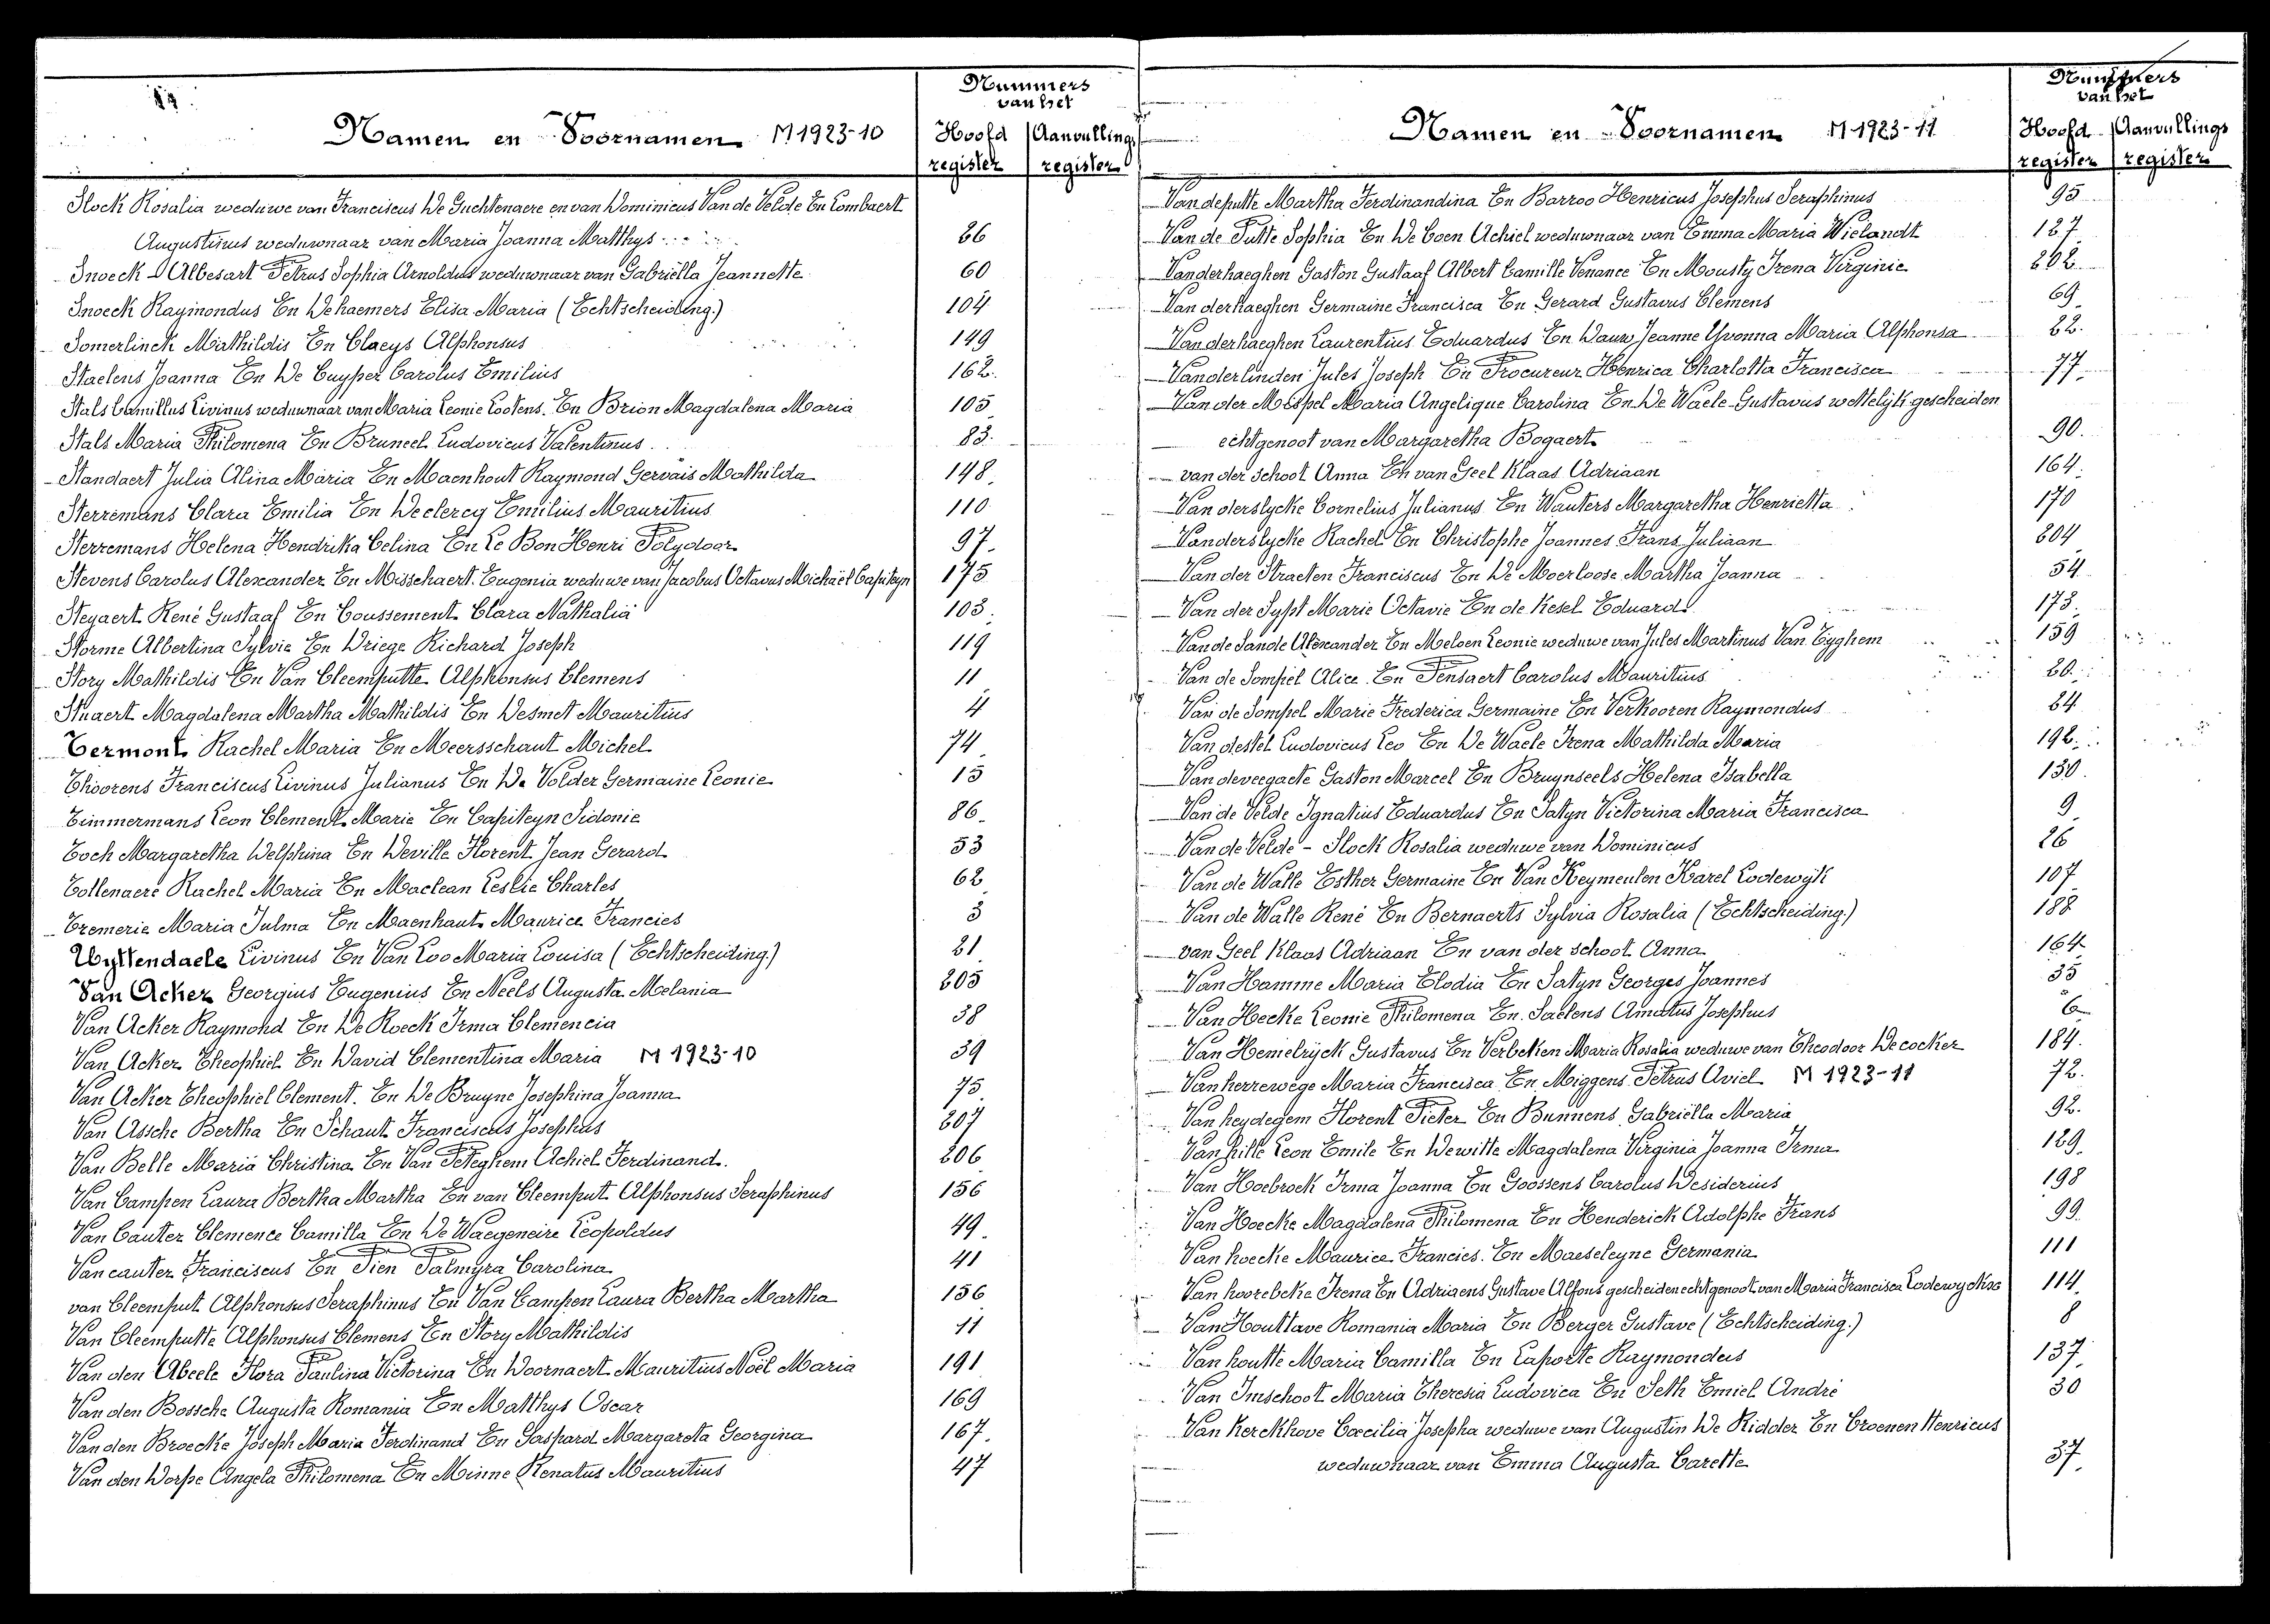 Nummers
van het
Namen en Voornamen M 1923-10
Hoofd register Aanvullings register
Slock Rosalia weduwe van Franciscus De Guchtenaere en van Dominicus Van de Velde En Lombaert
Augustinus weduwnaar van Maria Joanna Matthys 26
Snoeck - Albesart Petrus Sophia Arnoldus weduwnaar van Gabriëlla Jeannette 60
Snoeck Raymondus En Dehaemers Elisa Maria (Echtscheiding.) 104
Somerlinck Mathildis En Claeys Alphonsus 149
Staelens Joanna En De Cuyper Carolus Emilius 162
Stals Camillus Livinus weduwnaar van Maria Leonie Lootens En Brion Magdalena Maria 105
Stals Maria Philomena En Bruneel Ludovicus Valentinus 83
Standaert Julia Alina Maria En Maenhout Raymond Gervais Mathilda 148
Sterremans Clara Emilia En Declercq Emilius Mauritius 110
Sterremans Helena Hendrika Celina En Le Bon Henri Polydoor 97
Stevens Carolus Alexander En Misschaert Eugenia weduwe van Jacobus Octavus Michaël Capiteyn 175
Steyaert René Gustaaf En Coussement Clara Nathalia 103
Storme Albertina Sylvie En Driege Richard Joseph 119
Story Mathildis En Van Cleemputte Alphonsus Clemens 11
Stuaert Magdalena Martha Mathildis En Desmet Mauritius 4
Termont Rachel Maria En Meersschaut Michel 74
Thoorens Franciscus Livinus Julianus En De Volder Germaine Leonie 15
Timmermans Leon Clement Marie En Capiteyn Sidonie 86
Toch Margaretha Delphina En Deville Florent Jean Gerard 53
Tollenaere Rachel Maria En Maclean Leslie Charles 62
Tremerie Maria Julma En Maenhaut Maurice Francies 3
Uyttendaele Livinus En Van Loo Maria Louisa (Echtscheiding.) 21
Van Acker Georgius Eugenius En Neels Augusta Melania 205
Van Acker Raymond En De Roeck Irma Clemencia 38
Van Acker Theophiel En David Clementina Maria M 1923-10 39
Van Acker Theophiel Clement. En De Bruyne Josephina Joanna 75
Van Assche Bertha En Schaut Franciscus Josephus 207
Van Belle Maria Christina En Van Peteghem Achiel Ferdinand. 206
Van Campen Laura Bertha Martha En van Cleemput Alphonsus Seraphinus 156
Van Cauter Clemence Camilla En De Waegeneire Leopoldus 49
Vancauter Franciscus En Pien Palmyra Carolina 41
van Cleemput Alphonsus Seraphinus En Van Campen Laura Bertha Martha 156
Van Cleemputte Alphonsus Clemens En Story Mathildis 11
Van den Abeele Flora Paulina Victorina En Doornaert Mauritius Noël Maria 191
Van den Bossche Augusta Romania En Matthys Oscar 169
Van den Broecke Joseph Maria Ferdinand En Gaspard Margareta Georgina 167
Van den Dorpe Angela Philomena En Minne Renatus Mauritius 47
Nummers
van het
Namen en Voornamen M 1923-11
Hoofd register Aanvullings register
Vandeputte Martha Ferdinandina En Barroo Henricus Josephus Seraphinus 95
Van de Putte Sophia En De Coen Achiel weduwnaar van Emma Maria Wielandt 127
Vanderhaeghen Gaston Gustaaf Albert Camille Venance En Mousty Irena Virginie 202
Van derhaeghen Germaine Francisca En Gerard Gustavus Clemens 69
Van derhaeghen Laurentius Eduardus En Dauw Jeanne Yvonna Maria Alphonsa 22
Vanderlinden Jules Joseph En Procureur Henrica Charlotta Francisca 77
Van der Mespel Maria Angelique Carolina En De Waele Gustavus wettelijk gescheiden
echtgenoot van Margaretha Bogaert 90
van der schoot Anna En van Geel Klaas Adriaan 164
Van derslycke Cornelius Julianus En Wauters Margaretha Henrietta 170
Vanderslycke Rachel En Christophe Joannes Frans Juliaan 204
Van der Straeten Franciscus En De Moerloose Martha Joanna 54
Van der Sypt Marie Octavie En de Kesel Eduard 173
Van de Sande Alexander En Meloen Leonie weduwe van Jules Martinus Van Tyghem 159
Van de Sompel Alice En Pensaert Carolus Mauritius 20
Van de Sompel Marie Frederica Germaine En Verkooren Raymondus 24
Van destel Ludovicus Leo En De Waele Irena Mathilda Maria 192
Van deveegaete Gaston Marcel En Bruynseels Helena Isabella 130
Van de Velde Ignatius Eduardus En Satyn Victorina Maria Francisca 9
Van de Velde - Slock Rosalia weduwe van Dominicus 26
Van de Walle Esther Germaine En Van Keymeulen Karel Lodewyk 107
Van de Walle René En Bernaerts Sylvia Rosalia (Echtscheiding.) 188
van Geel Klaas Adriaan En van der schoot Anna 164
Van Hamme Maria Elodia En Satyn Georges Joannes 35
Van Hecke Leonie Philomena En Saelens Amatus Josephus 6
Van Hemelrijck Gustavus En Verbeken Maria Rosalia weduwe van Theodoor Decocker 184
Vanherrewege Maria Francisca En Miggens Petrus Aviel M 1923-11 72
Van heydegem Florent Pieter En Bunnens Gabriëlla Maria 92
Van hille Leon Emile En Dewitte Magdalena Virginia Joanna Irma 129
Van Hoebrock Irma Joanna En Goossens Carolus Desiderius 198
Van Hoecke Magdalena Philomena En Henderick Adolphe Frans 99
Van hoecke Maurice Francies En Maeseleyne Germania 111
Van hoorebeke Irena En Adriaens Gustave Alfons gescheiden echtgenoot van Maria Francisca Lodewyckxs 114
Van Houttave Romania Maria En Berger Gustave (Echtscheiding.) 8
Van houtte Maria Camilla En Laporte Raymondus 137
Van Imschoot Maria Theresia Ludovica En Seth Emiel André 30
Van Kerckhove Cæcilia Josepha weduwe van Augustin De Ridder En Croenen Henricus
weduwnaar van Emma Augusta Carette 37